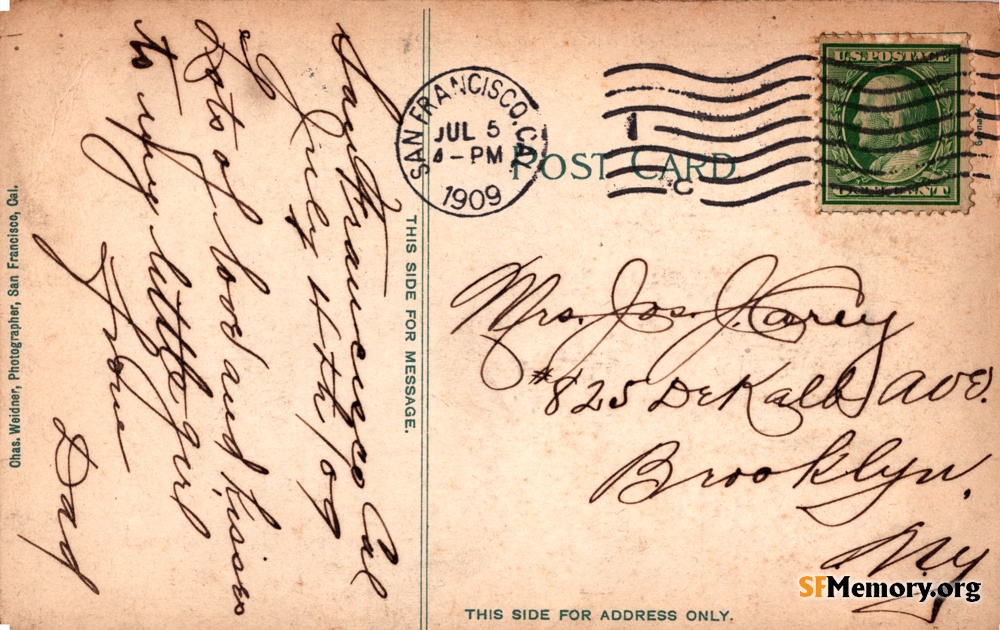 San Francisco Cal
July 4th/09
Lots of love and kisses
to my little girl
From
Dad
Chas. Weidner, Photographer, San Francisco, Cal.
THIS SIDE FOR MESSAGE.
SAN FRANCISCO, CAL
JUL 5
4-PM
1909
POST CARD
U.S. POSTAGE
Germany
Mrs. Jos. J. Carey
#825 DeKalb Ave.
Brooklyn,
N.Y
THIS SIDE FOR ADDRESS ONLY.
SFMemory.org